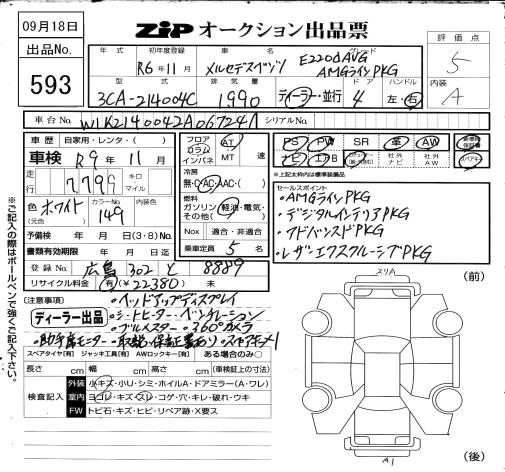 09月18日
ZIP オークション出品票
出品No.
593
評価点
5
内装
A
年式
初年度登録
R6年11月
車名
メルセデスベンツ
グレード
E220dAVG
AMGラインPKG
型式
3CA-214004C
排気量
1990
ディーラー・並行
ドア
4
ハンドル
左・右
車台No.
W1K2140042A067241
シリアルNo.
車歴
自家用・レンタ・( )
車検 R9年11月
走行 7,799 キロ マイル
色 ホワイト
(元色)
カラーNo.
149
内装色
予備検 年 月 日(3・8)No.
書類有効期限 年 月 日
登録No. 広島 302 と 8889
リサイクル料金 (有)(¥22380) 未
フロア
コラム
インパネ
AT
MT 速
冷房
無・C・AC・AAC・( )
燃料
ガソリン・軽油・電気・
その他( )
Nox 適合・非適合
乗車定員 5 名
PS PW SR 革 AW
ナビ エアB 社外ナビ 社外AW
保証書
スペアキー
※上記太枠内は標準装備品
セールスポイント
・AMGラインPKG
・デジタルインテリアPKG
・アドバンスドPKG
・レザーエクスクルーシブPKG
(注意事項)
・ヘッドアップディスプレイ
ディーラー出品
・シートヒーター・ベンチレーション
・ブルメスター・360°カメラ
・助手席モニター・取説・保証書あり・スペアキー1
スペアタイヤ[有] ジャッキ工具[有] AWロックキー[有] ある場合のみ○
長さ cm 幅 cm 高さ cm (車検証上の寸法)
検査記入
外装 小キズ・小U・シミ・ホイルA・ドアミラー(A・ワレ)
室内 ヨゴレ・キズ・スレ・コゲ・穴・キレ・破れ・ウキ
FW トビ石・キズ・ヒビ・リペア跡・X要ス
(前)
スリA
A1
(後)
※ご記入の際はボールペンで強くご記入下さい。